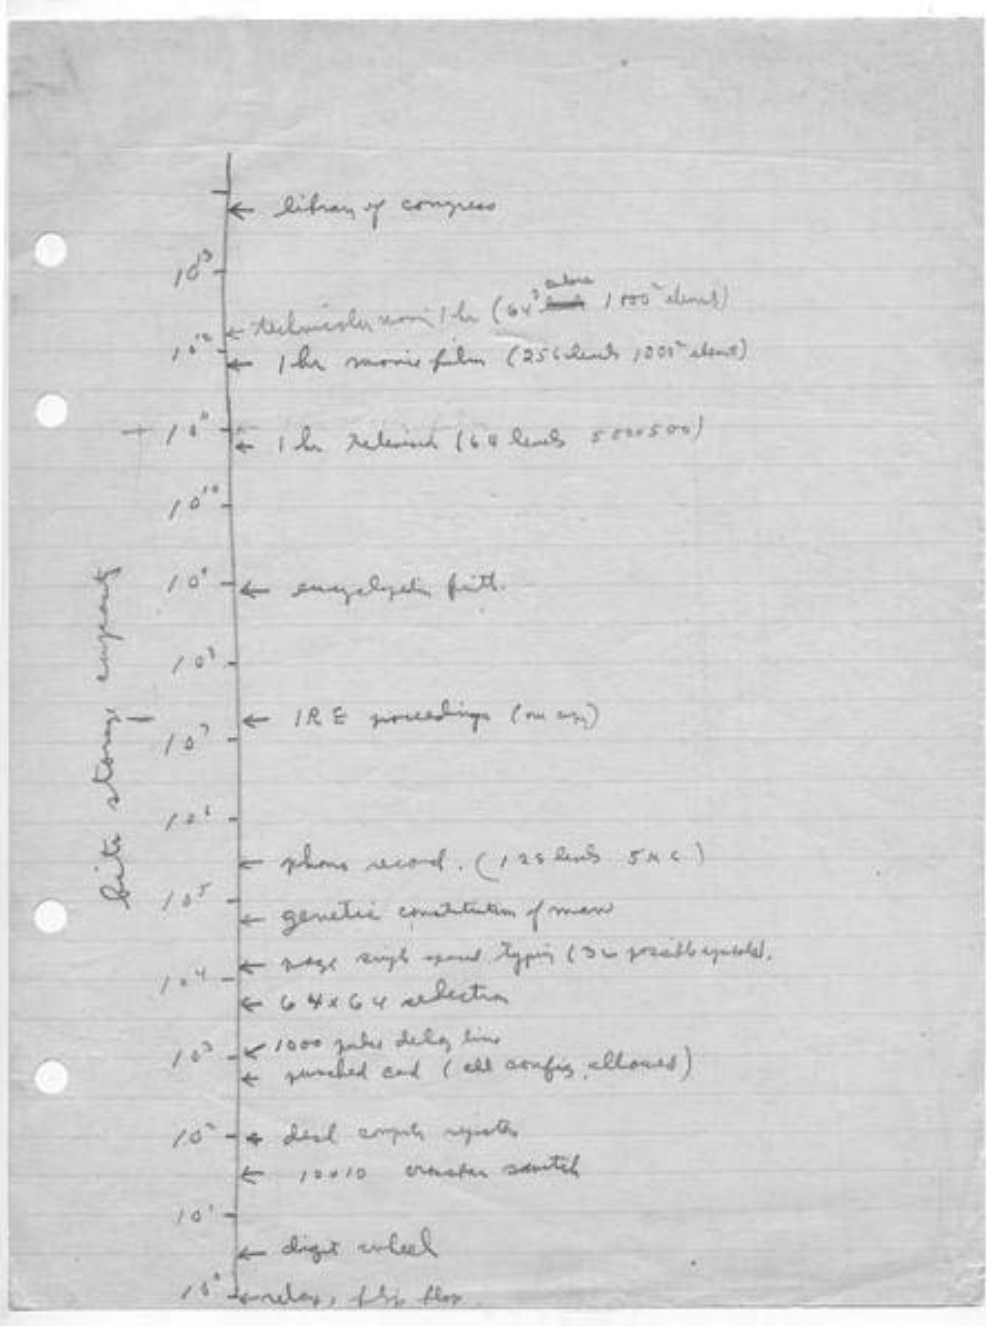 library of congress
10¹³
technicolor movie 1 hr (64³ colors 1000² elements)
10¹²
1 hr movie film (256 levels 1000² elements)
10¹¹
1 hr television (64 levels 500x500)
10¹⁰
10⁹
encyclopedia britt.
10⁸
bits storage capacity
IRE proceedings
10⁷
10⁶
phono record. (128 levels 5 K C)
10⁵
genetic constitution of man
page single spaced typing (32 possible symbols).
10⁴
64x64 selection
1000 pulse delay line
10³
punched card (all config. allowed)
10²
desk comptr register
10x10 crossbar switch
10¹
digit wheel
10⁰
relay, flip flop